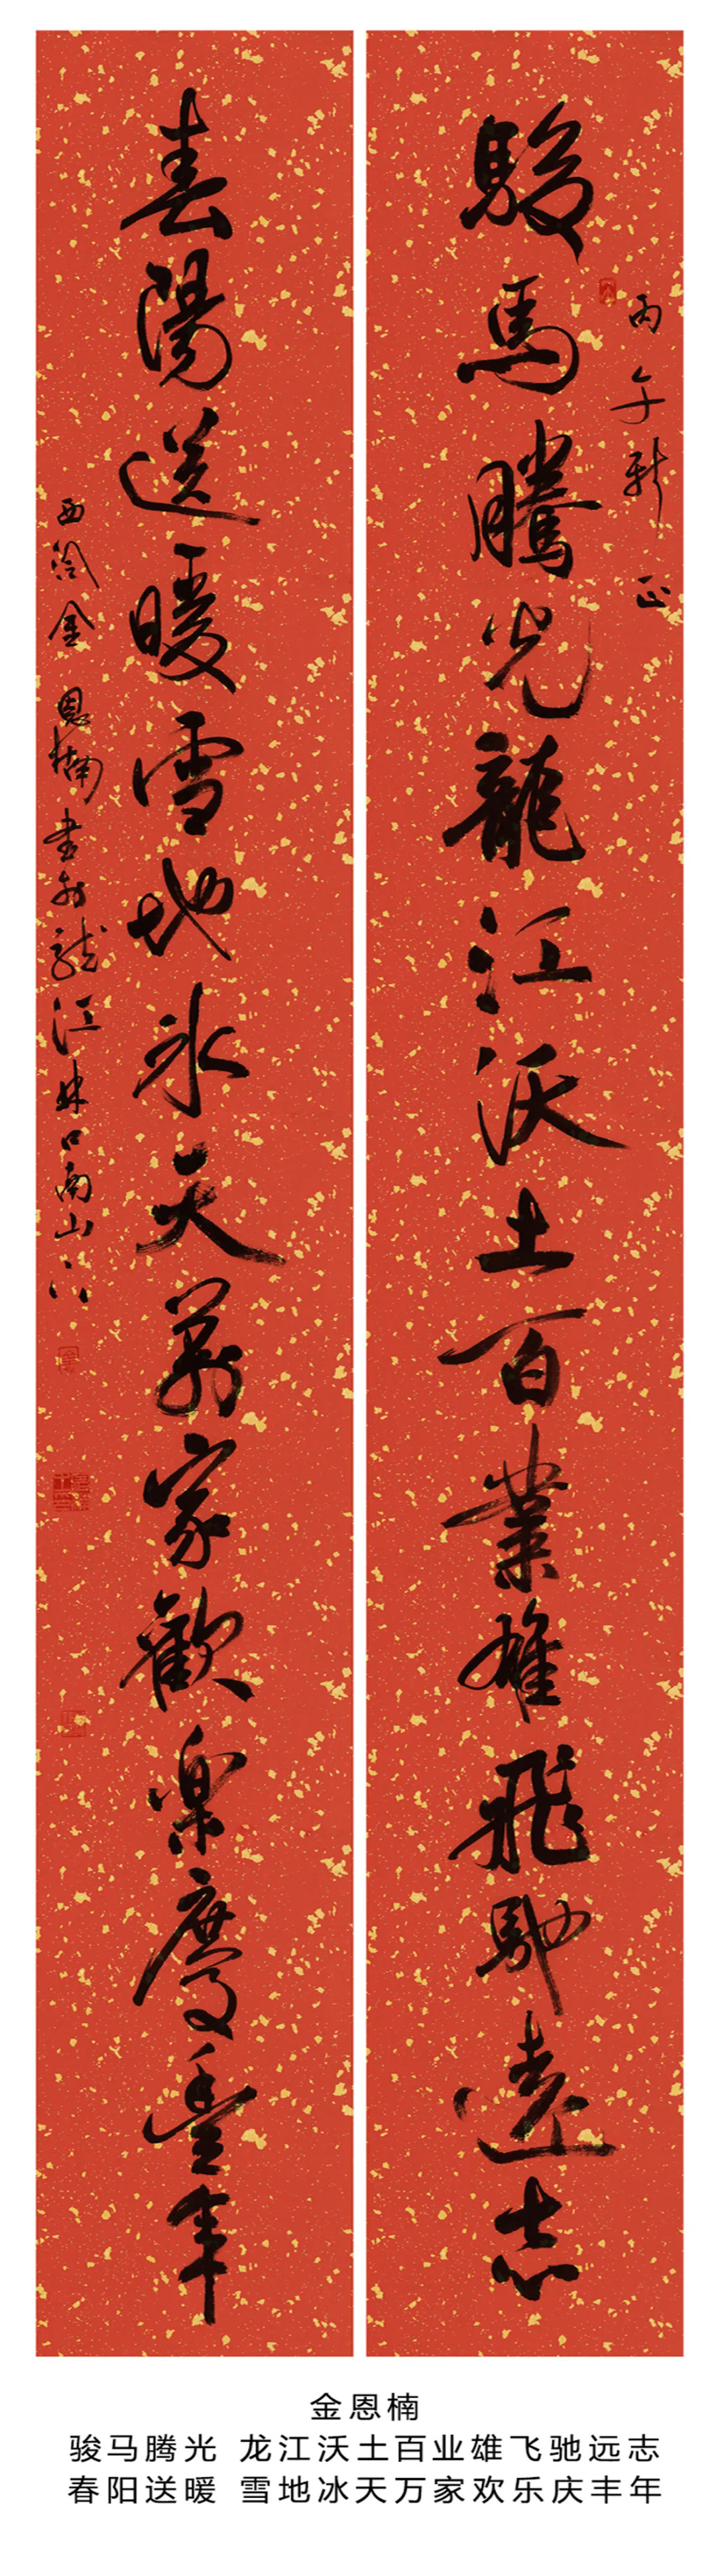 駿馬騰光龍江沃土百業雄飛馳遠志
丙午新正
春陽送暖雪地冰天萬家歡樂慶豐年
金恩楠書於龍江林口南山下
金恩楠
骏马腾光 龙江沃土百业雄飞驰远志
春阳送暖 雪地冰天万家欢乐庆丰年